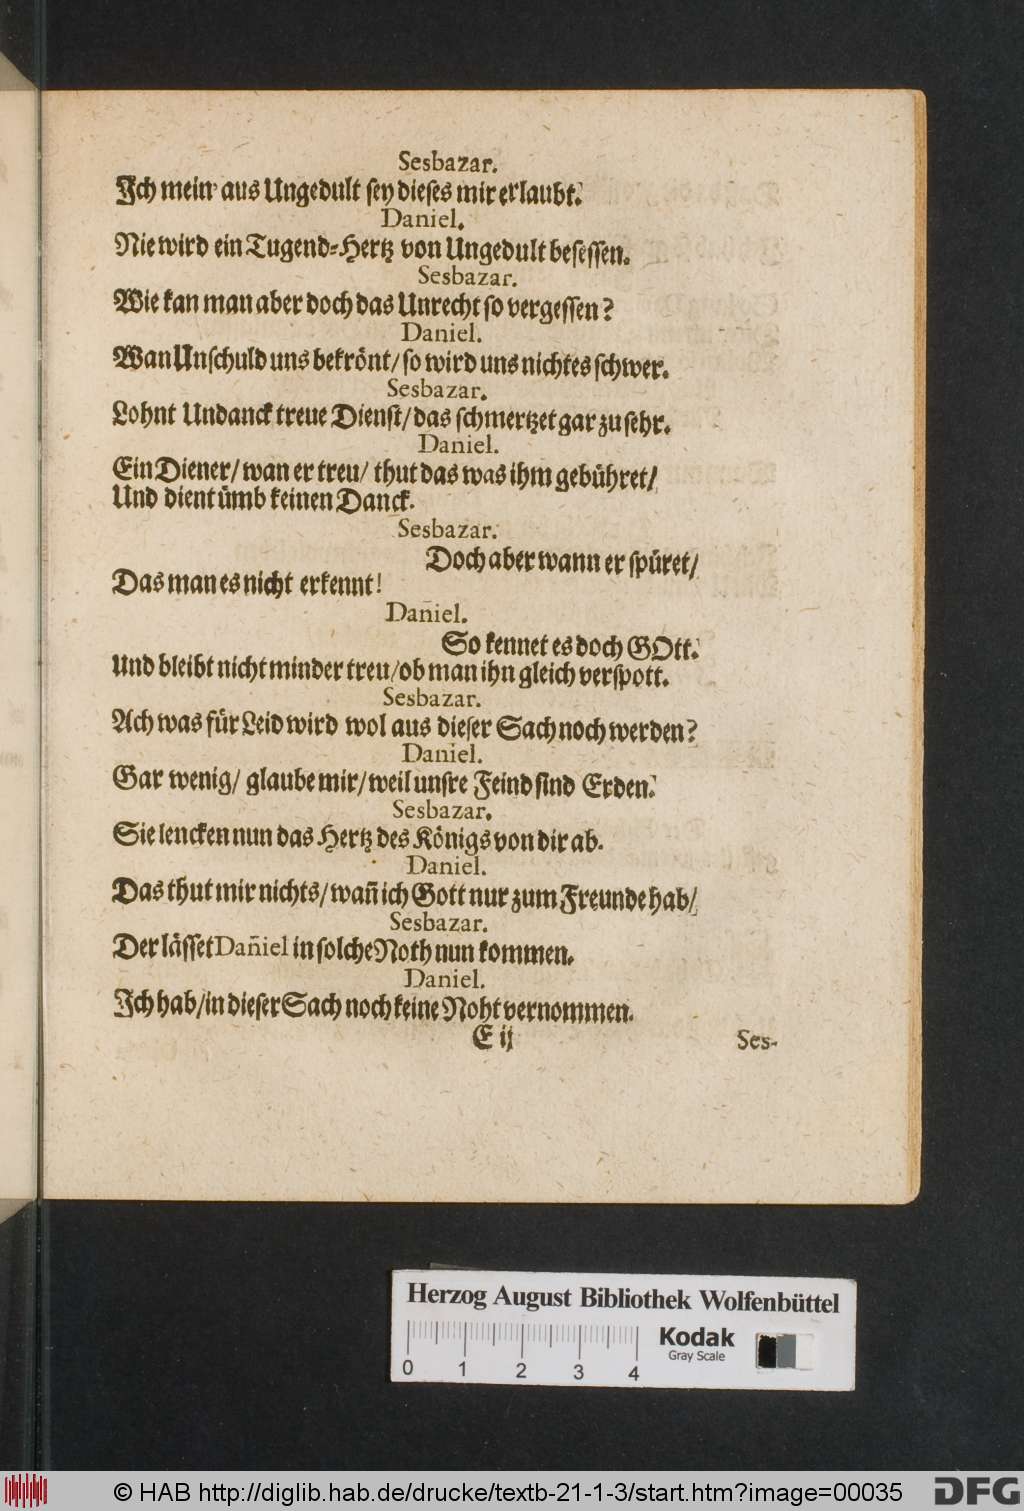 Sesbazar.
Ich mein' aus Ungedult sey dieses mir erlaubt.
Daniel.
Nie wird ein Tugend-Hertz von Ungedult besessen.
Sesbazar.
Wie kan man aber doch das Unrecht so vergessen?
Daniel.
Wan Unschuld uns bekrönt/ so wird uns nichtes schwer.
Sesbazar.
Lohnt Undanck treue Dienst/ das schmertzet gar zu sehr.
Daniel.
Ein Diener/ wan er treu/ thut das was ihm gebühret/
Und dient ümb keinen Danck.
Sesbazar.
Doch aber wann er spüret/
Das man es nicht erkennt!
Dañiel.
So kennet es doch GOtt.
Und bleibt nicht minder treu/ ob man ihn gleich verspott.
Sesbazar.
Ach was für Leid wird wol aus dieser Sach noch werden?
Daniel.
Gar wenig/ glaube mir/ weil unsre Feind sind Erden.
Sesbazar.
Sie lencken nun das Hertz des Königs von dir ab.
Daniel.
Das thut mir nichts/ wañ ich Gott nur zum Freunde hab/
Sesbazar.
Der lässet Dañiel in solche Noth nun kommen.
Daniel.
Ich hab/ in dieser Sach noch keine Noht vernommen.
E ij
Ses-
Herzog August Bibliothek Wolfenbüttel
Kodak
Gray Scale
0 1 2 3 4
© HAB http://diglib.hab.de/drucke/textb-21-1-3/start.htm?image=00035
DFG